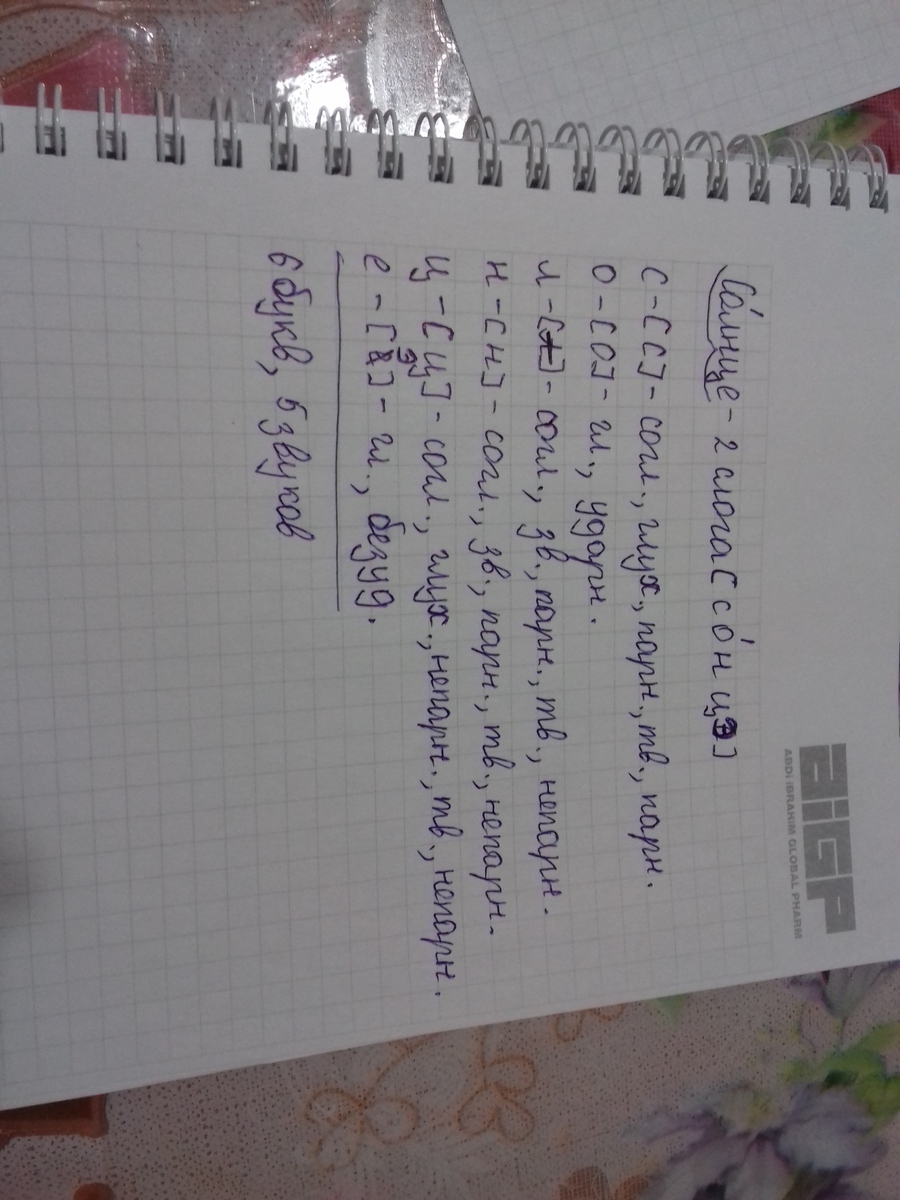 aiGP
ABDi iBRAHiM GLOBAL PHARM
Со́лнце - 2 слога [со́нцэ]
с - [с] - согл., глух., парн., тв., парн.
о - [о] - гл., ударн.
л - [-] - согл., зв., парн., тв., непарн.
н - [н] - согл., зв., парн., тв., непарн.
ц - [ц] - согл., глух., непарн., тв., непарн.
е - [э] - гл., безуд.
6 букв, 5 звуков